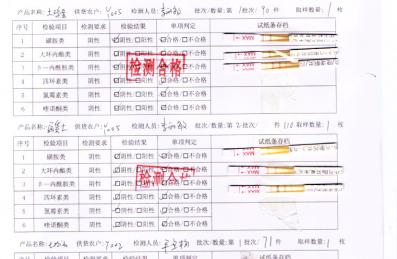 产品名称: 土鸡蛋 供货农户: Y005 检测人员: 批次/数量: 第 1 批次 90 件 取样数量: 1 枚
序号 检验项目 检测要求 检验结果 单项判定 试纸条存档
1 磺胺类 阴性 ☑阴性/☐阳性 ☑合格/☐不合格
2 大环内酯类 阴性 ☑阴性/☐阳性 ☑合格/☐不合格
3 β-内酰胺类 阴性 ☑阴性/☐阳性 ☑合格/☐不合格
4 四环素类 阴性 ☑阴性/☐阳性 ☑合格/☐不合格
5 氯霉素类 阴性 ☑阴性/☐阳性 ☑合格/☐不合格
6 喹诺酮类 阴性 ☑阴性/☐阳性 ☑合格/☐不合格
检测合格
MAX
MAX
MAX
产品名称: 供货农户: Y005 检测人员: 批次/数量: 第 2 批次/ 件 110 取样数量: 1 枚
序号 检验项目 检测要求 检验结果 单项判定 试纸条存档
1 磺胺类 阴性 ☑阴性/☐阳性 ☑合格/☐不合格
2 大环内酯类 阴性 ☑阴性/☐阳性 ☑合格/☐不合格
3 β-内酰胺类 阴性 ☑阴性/☐阳性 ☑合格/☐不合格
4 四环素类 阴性 ☑阴性/☐阳性 ☑合格/☐不合格
5 氯霉素类 阴性 ☑阴性/☐阳性 ☑合格/☐不合格
6 喹诺酮类 阴性 ☑阴性/☐阳性 ☑合格/☐不合格
检测合格
MAX
MAX
MAX
产品名称: 供货农户: Y002 检测人员: 批次/数量: 第 1 批次 71 件 取样数量: 1 枚